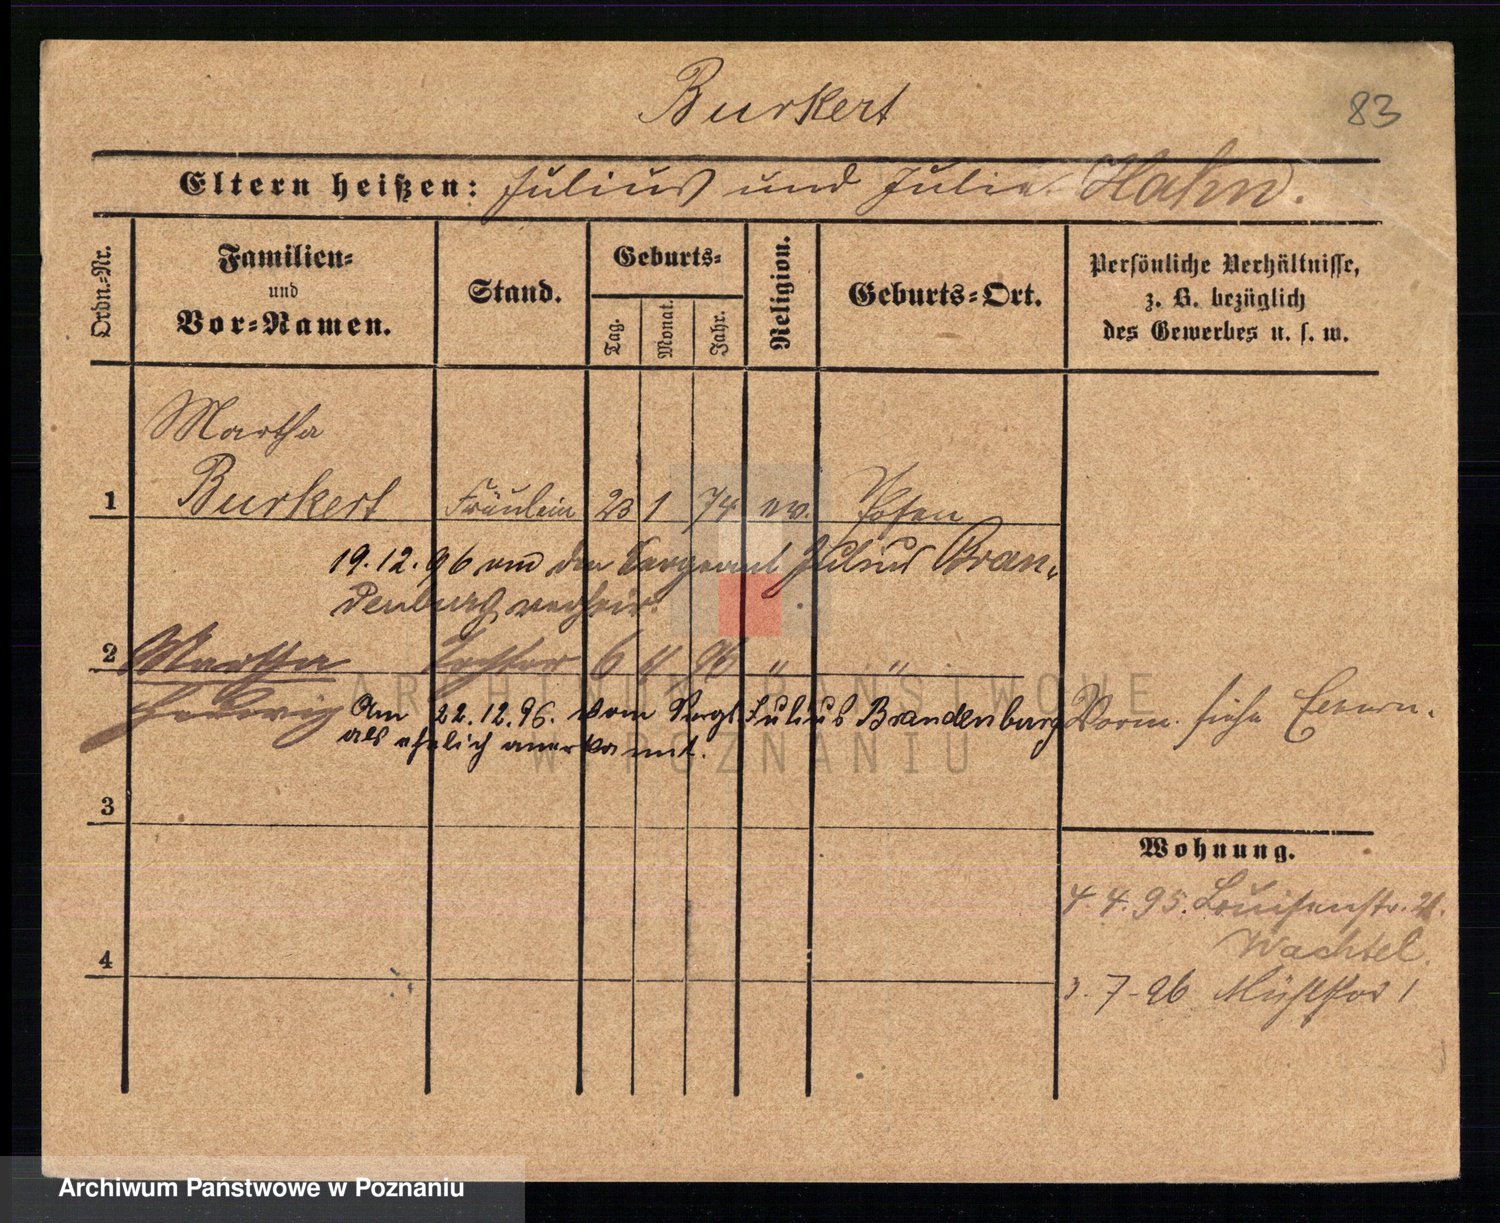 Burkert
83
Eltern heißen: Julius und Julie Hahn.
Ordn.-Nr.
Familien- und Vor-Namen.
Stand.
Geburts-
Tag.
Monat.
Jahr.
Religion.
Geburts-Ort.
Persönliche Verhältnisse,
z. B. bezüglich
des Gewerbes u. s. w.
Martha
1 Burkert Fräulein 23 1 74 ev. Posen
19.12.96 mit dem Sergeant Julius Bran-
denburg verheir.
2 Martha Tochter 6 96 " "
Hedwig Am 22.12.96. vom Sergt. Julius Brandenburg
als ehelich anerkannt.
Vorm. siehe
3
Wohnung.
4.4.95. Louisenstr. 21.
Wachtel.
4
3.7-96 Mühlthor 1
ARCHIWUM PAŃSTWOWE
W POZNANIU
Archiwum Państwowe w Poznaniu